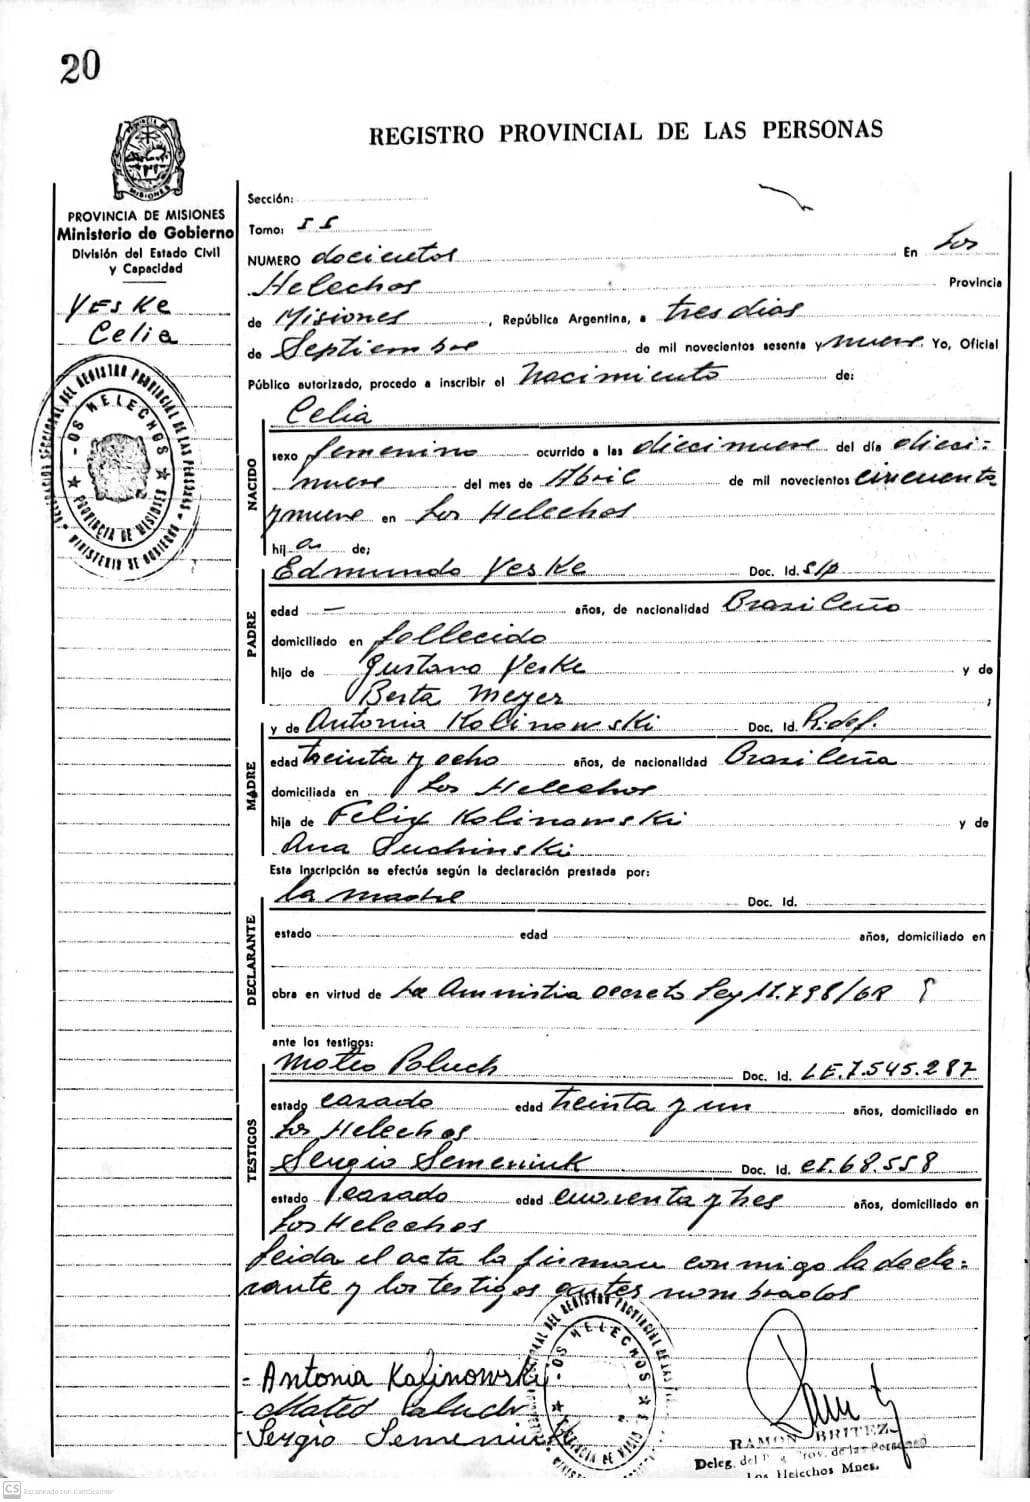 20
REGISTRO PROVINCIAL DE LAS PERSONAS
PROVINCIA DE
MISIONES
PROVINCIA DE MISIONES
Ministerio de Gobierno
División del Estado Civil
y Capacidad
YESKE
Celia
DELEGACION SECCIONAL DEL REGISTRO PROVINCIAL DE LAS PERSONAS
-OS HELECHOS
PROVINCIA DE MISIONES
MINISTERIO DE GOBIERNO
Sección:
Tomo: 55
NUMERO docientos En Los
Helechos Provincia
de Misiones, República Argentina, a tres dias
de Septiembre de mil novecientos sesenta y nueve. Yo, Oficial
Público autorizado, procedo a inscribir el Nacimiento de:
Celia
NACIDO
sexo femenino ocurrido a las diecinueve del día dieci=
nueve del mes de Abril de mil novecientos cincuenta
y nueve en Los Helechos
hij a de;
Edmundo Yeske Doc. Id. S/p
PADRE
edad — años, de nacionalidad Brasileño
domiciliado en fallecido
hijo de Gustavo Yeske y de
Berta Meyer ;
y de Antonia Kalinowski Doc. Id. R.def.
MADRE
edad treinta y ocho años, de nacionalidad Brasileña
domiciliada en Los Helechos
hija de Felix Kalinowski y de
Ana Suchinski
Esta inscripción se efectúa según la declaración prestada por:
la madre Doc. Id.
DECLARANTE
estado edad años, domiciliado en
obra en virtud de La Amnistia Decreto Ley 17.798/68
ante los testigos:
Mateo Paluch Doc. Id. L.E.7.545.287
TESTIGOS
estado casado edad treinta y un años, domiciliado en
Los Helechos
Sergio Semeniuk Doc. Id. CI.68.558
estado casado edad cuarenta y tres años, domiciliado en
Los Helechos
Leida el acta la firman conmigo la decla=
rante y los testigos antes nombrados
= Antonia Kalinowski
- Mateo Paluch
- Sergio Semeniuk
DEL REGISTRO PROVINCIAL DE LAS
OS HELECHOS
RAMON BRITEZ
Deleg. del Prov. de las Personas
Los Helechos Mnes.
CS Escaneado con CamScanner